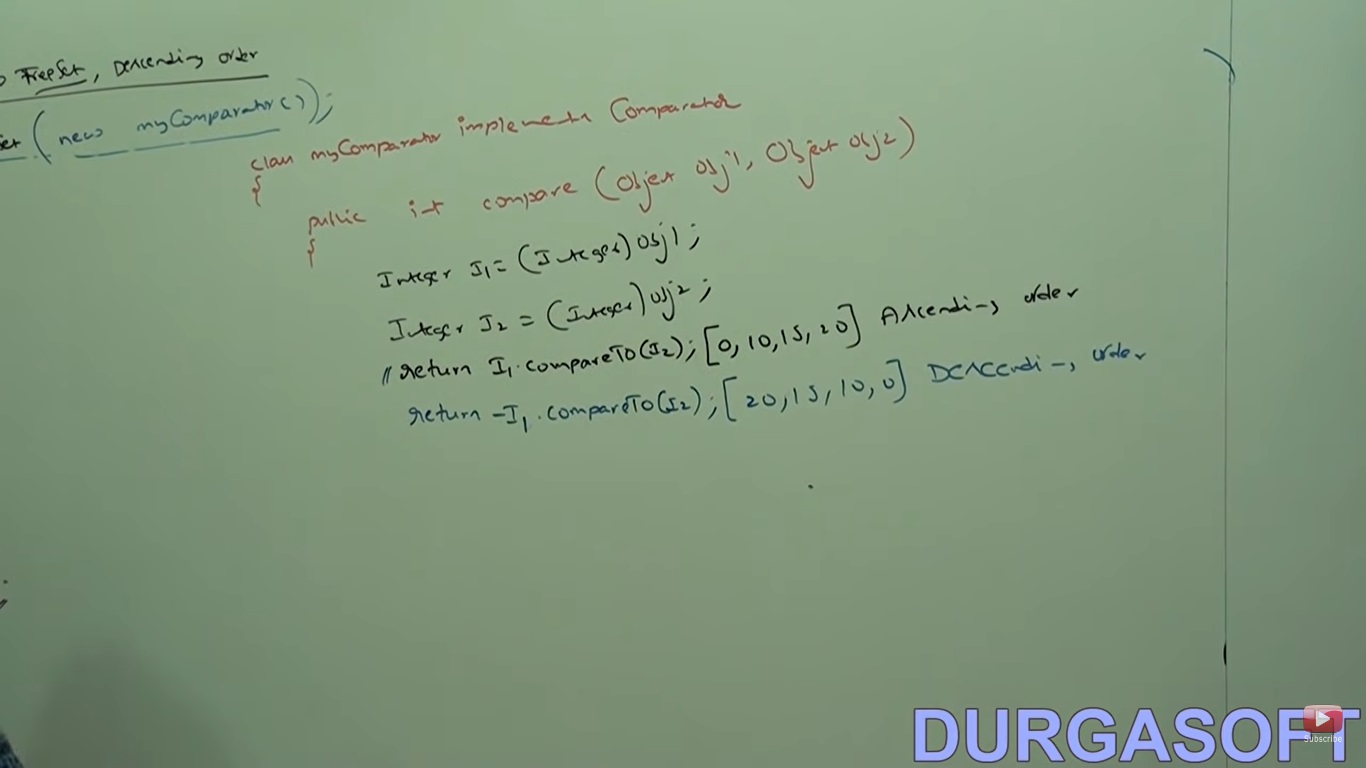 TreeSet, Descending order
(new myComparator());
class myComparator implements Comparator
{
public int compare (Object obj1, Object obj2)
{
Integer I1 = (Integer) obj1;
Integer I2 = (Integer) obj2;
// return I1.compareTo(I2); [0, 10, 15, 20] Ascending order
return -I1.compareTo(I2); [20, 15, 10, 0] Descending order
DURGASOFT
Subscribe